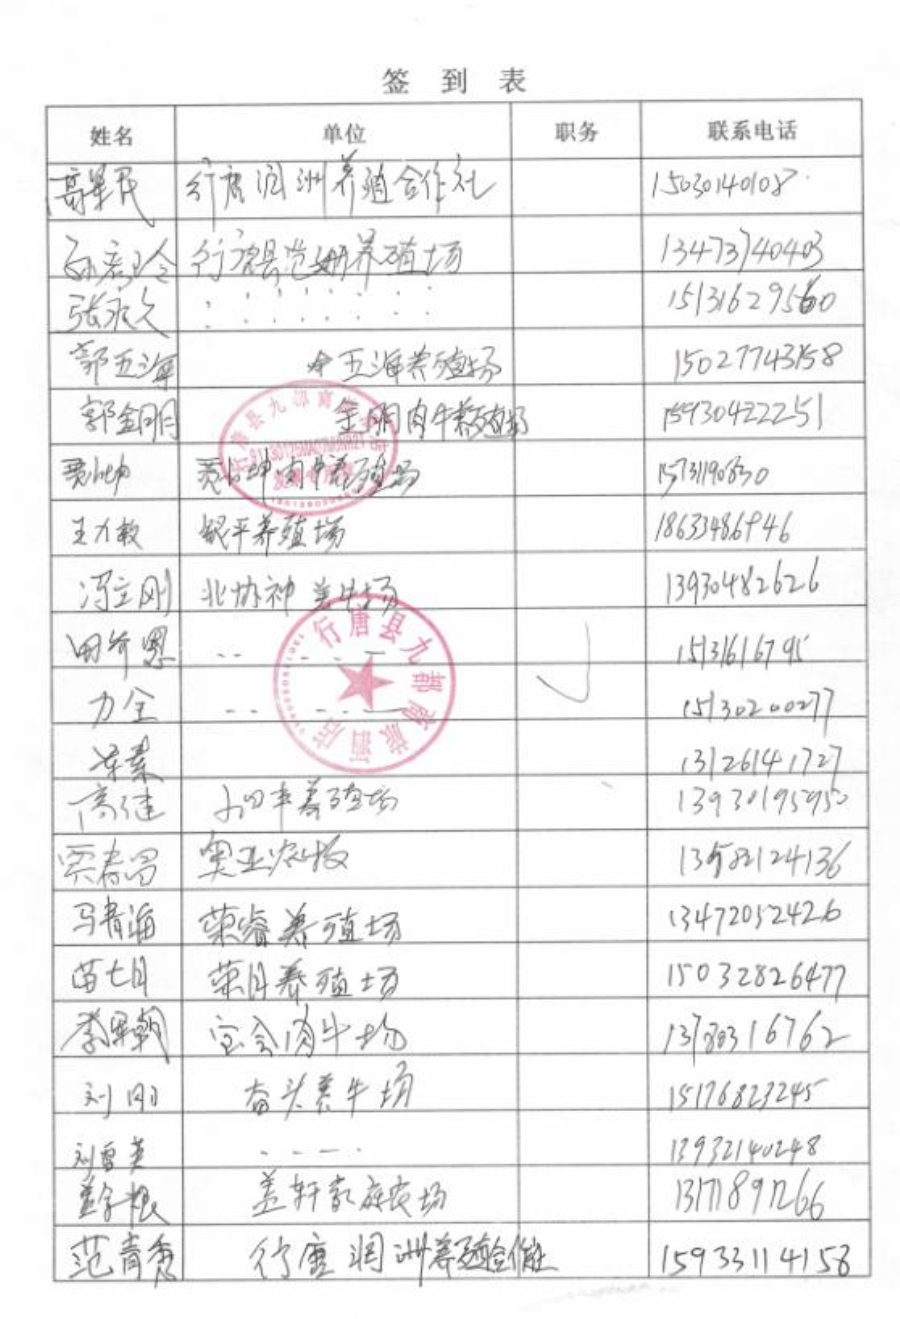 签 到 表
姓名 单位 职务 联系电话
高军民 行唐润洲养殖合作社 15030140108
行唐县范 养殖场 13473740403
张永久 : : : : : : : 15131629560
郭五海 五海养殖场 15027743158
郭金明 金明肉牛养殖场 15930422251
坤 坤肉牛养殖场 15731190830
王力敏 银平养殖场 18633486946
冯立刚 北协神 养牛场 13930482626
田 恩 15131616795
力全 15130200277
13126141727
高健 丰养殖场 13930195950
贾春昌 奥亚农牧 13582124136
马青海 荣睿养殖场 13472052426
苗七月 荣月养殖场 15032826477
李军朝 宝会肉牛场 13780316762
刘刚 奋头养牛场 15176823245
刘雪英 13932140248
盖 根 盖轩家庭农场 13171891266
范青秀 行唐润洲养殖合作社 15933114158
行唐县九都商旅酒店
行唐县九都商旅酒店